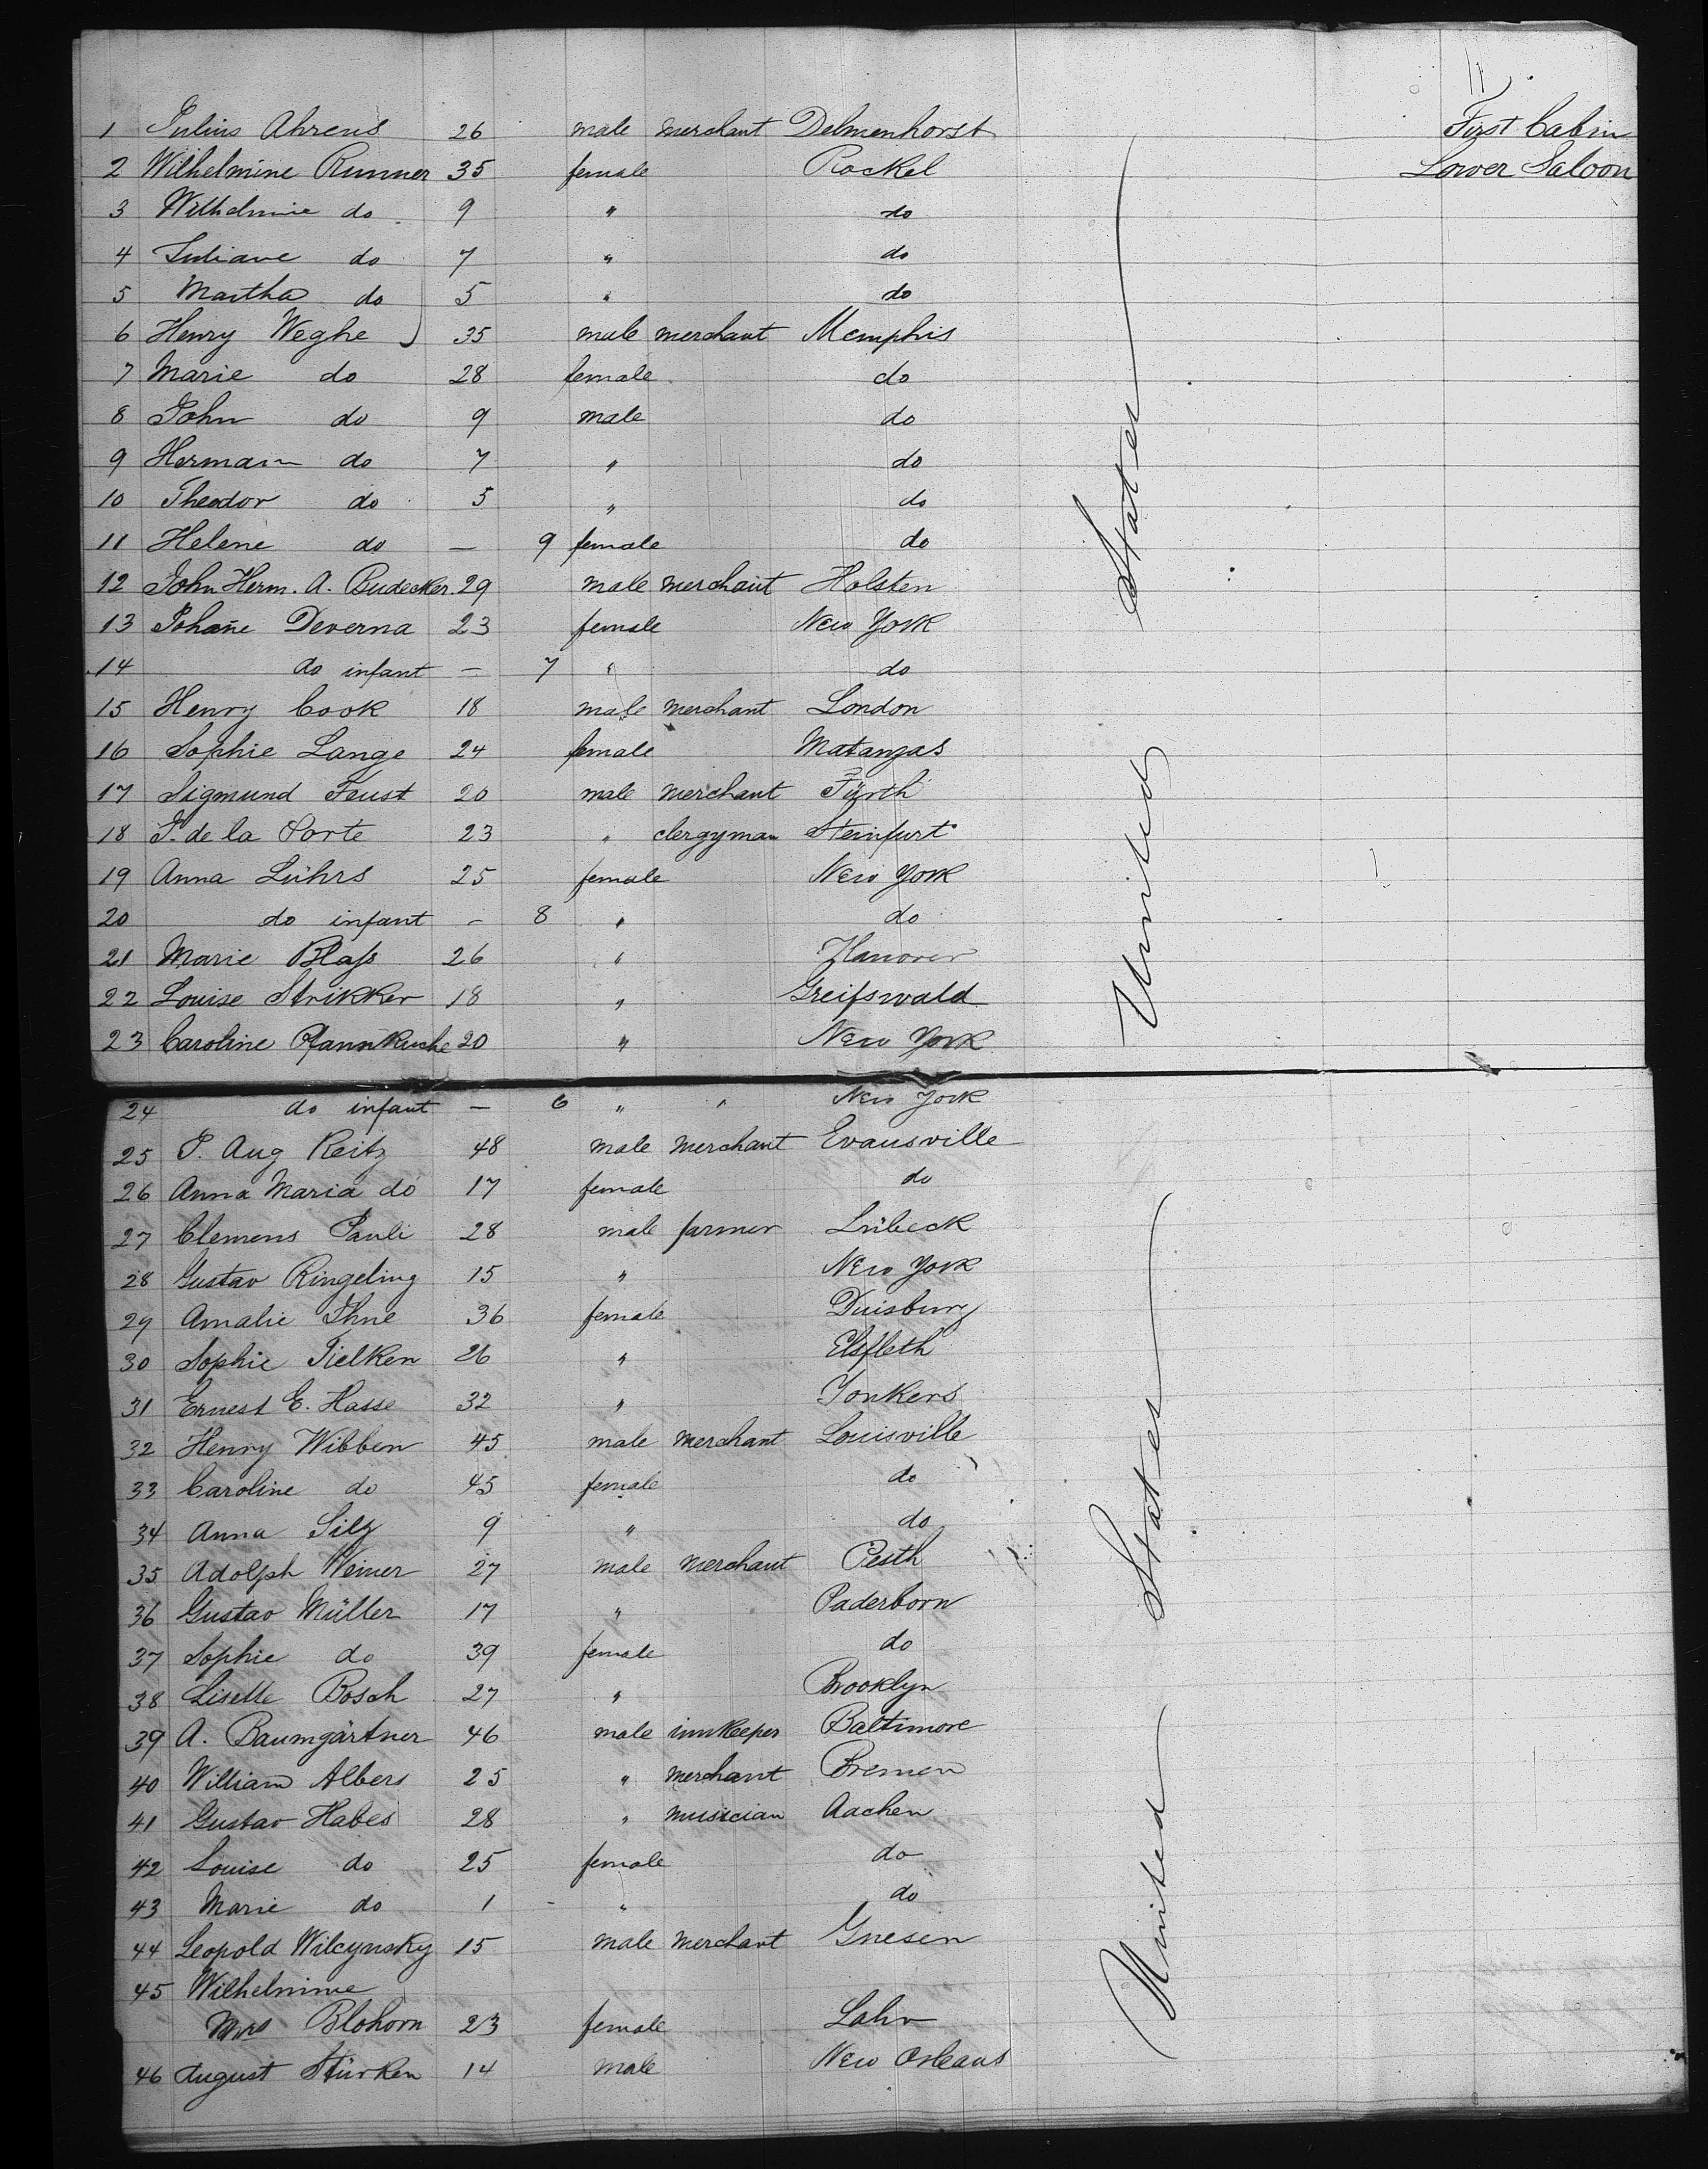 11
1 Julius Ahrens 26 male merchant Delmenhorst First Cabin
2 Wilhelmine Runner 35 female Rockel Lower Saloon
3 Wilhelmine do 9 " do
4 Juliane do 7 " do
5 Martha do 5 " do
6 Henry Weghe 35 male merchant Memphis
7 Marie do 28 female do
8 John do 9 male do
9 Hermann do 7 " do
10 Theodor do 5 " do
11 Helene do — 9 female do
12 John Herm. A. Budecker 29 male merchant Holsten
13 Johañe Deverna 23 female New York
14 do infant — 7 " do
15 Henry Cook 18 male merchant London
16 Sophie Lange 24 female Matanzas
17 Sigmund Feust 20 male merchant Fürth
18 J. de la Porte 23 " clergyman Steinfurt
19 Anna Lührs 25 female New York
20 do infant - 8 " do
21 Marie Blaß 26 " Hanover
22 Louise Strikker 18 " Greifswald
23 Caroline Pfannkuche 20 " New York
United States
24 do infant — 6 " " New York
25 J. Aug Reitz 48 male merchant Evansville
26 Anna Maria do 17 female do
27 Clemens Pauli 28 male farmer Lübeck
28 Gustav Ringeling 15 " New York
29 Amalie Ihne 36 female Duisburg
30 Sophie Tielken 26 " Elsfleth
31 Ernest E. Hasse 32 " Yonkers
32 Henry Wibben 45 male merchant Louisville
33 Caroline do 45 female do
34 Anna Silz 9 " do
35 Adolph Weiner 27 male merchant Pesth
36 Gustav Müller 17 " Paderborn
37 Sophie do 39 female do
38 Lisette Bosch 27 " Brooklyn
39 A. Baumgärtner 46 male innkeeper Baltimore
40 William Albers 25 " merchant Bremen
41 Gustav Habes 28 " musician Aachen
42 Louise do 25 female do
43 Marie do 1 - " do
44 Leopold Wilcynsky 15 male merchant Gnesen
45 Wilhelmine
Mrs Blohorn 23 female Lahr
46 August Stürken 14 male New Orleans
United States